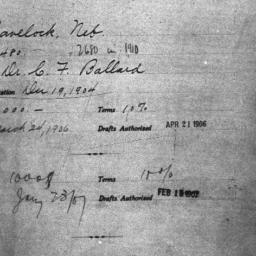 avelock, Neb.
480. 2680 in 1910
Dr. C. F. Ballard
ation Dec 19, 1904
000.— Terms 10%
arch 24, 1906 Drafts Authorized APR 21 1906
1000 Terms 10%
Jany 28/07 Drafts Authorized FEB 15 1907